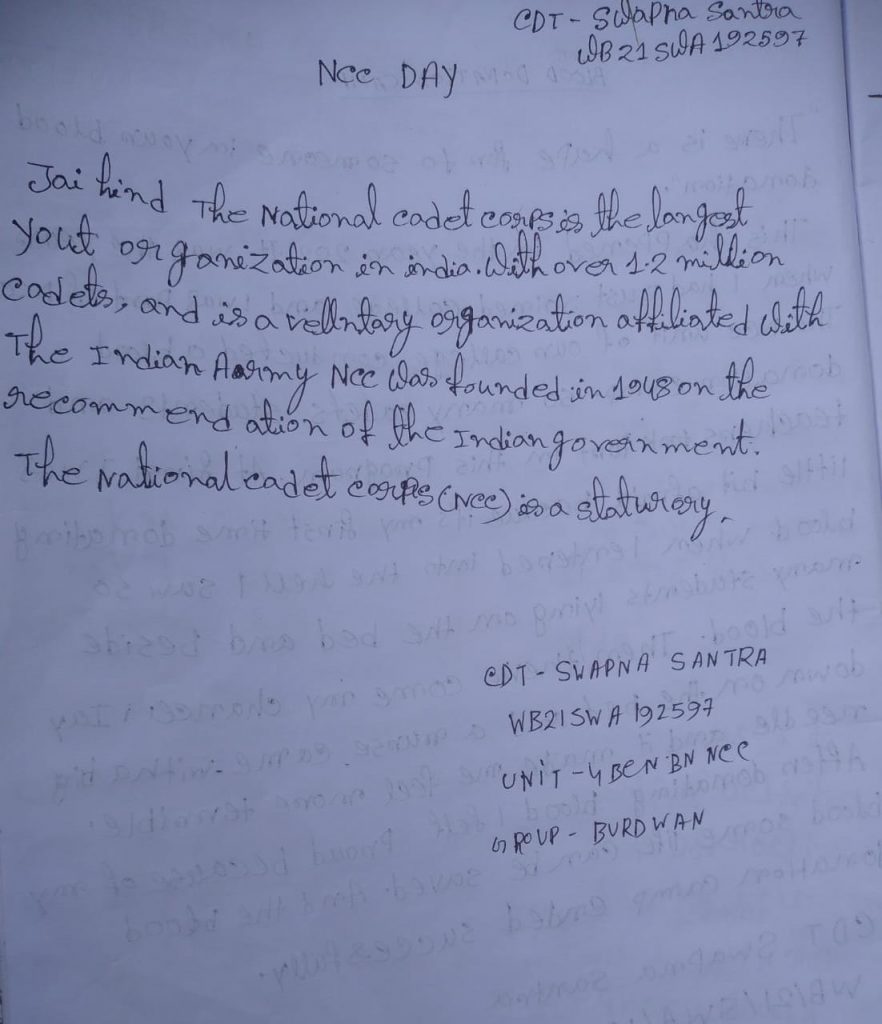 CDT - Swapna Santra
WB21SWA192597
Ncc DAY
Jai hind The National cadet corps is the langest
yout organization in india. With over 1.2 million
cadets, and is a vellntary organization affiliated with
The Indian Aarmy Ncc Was founded in 1948 on the
recommendation of the Indian government.
The National cadet corps (Ncc) is a staturory.
CDT - SWAPNA SANTRA
WB21SWA192597
UNIT - 4 BEN BN NCC
GROUP - BURDWAN